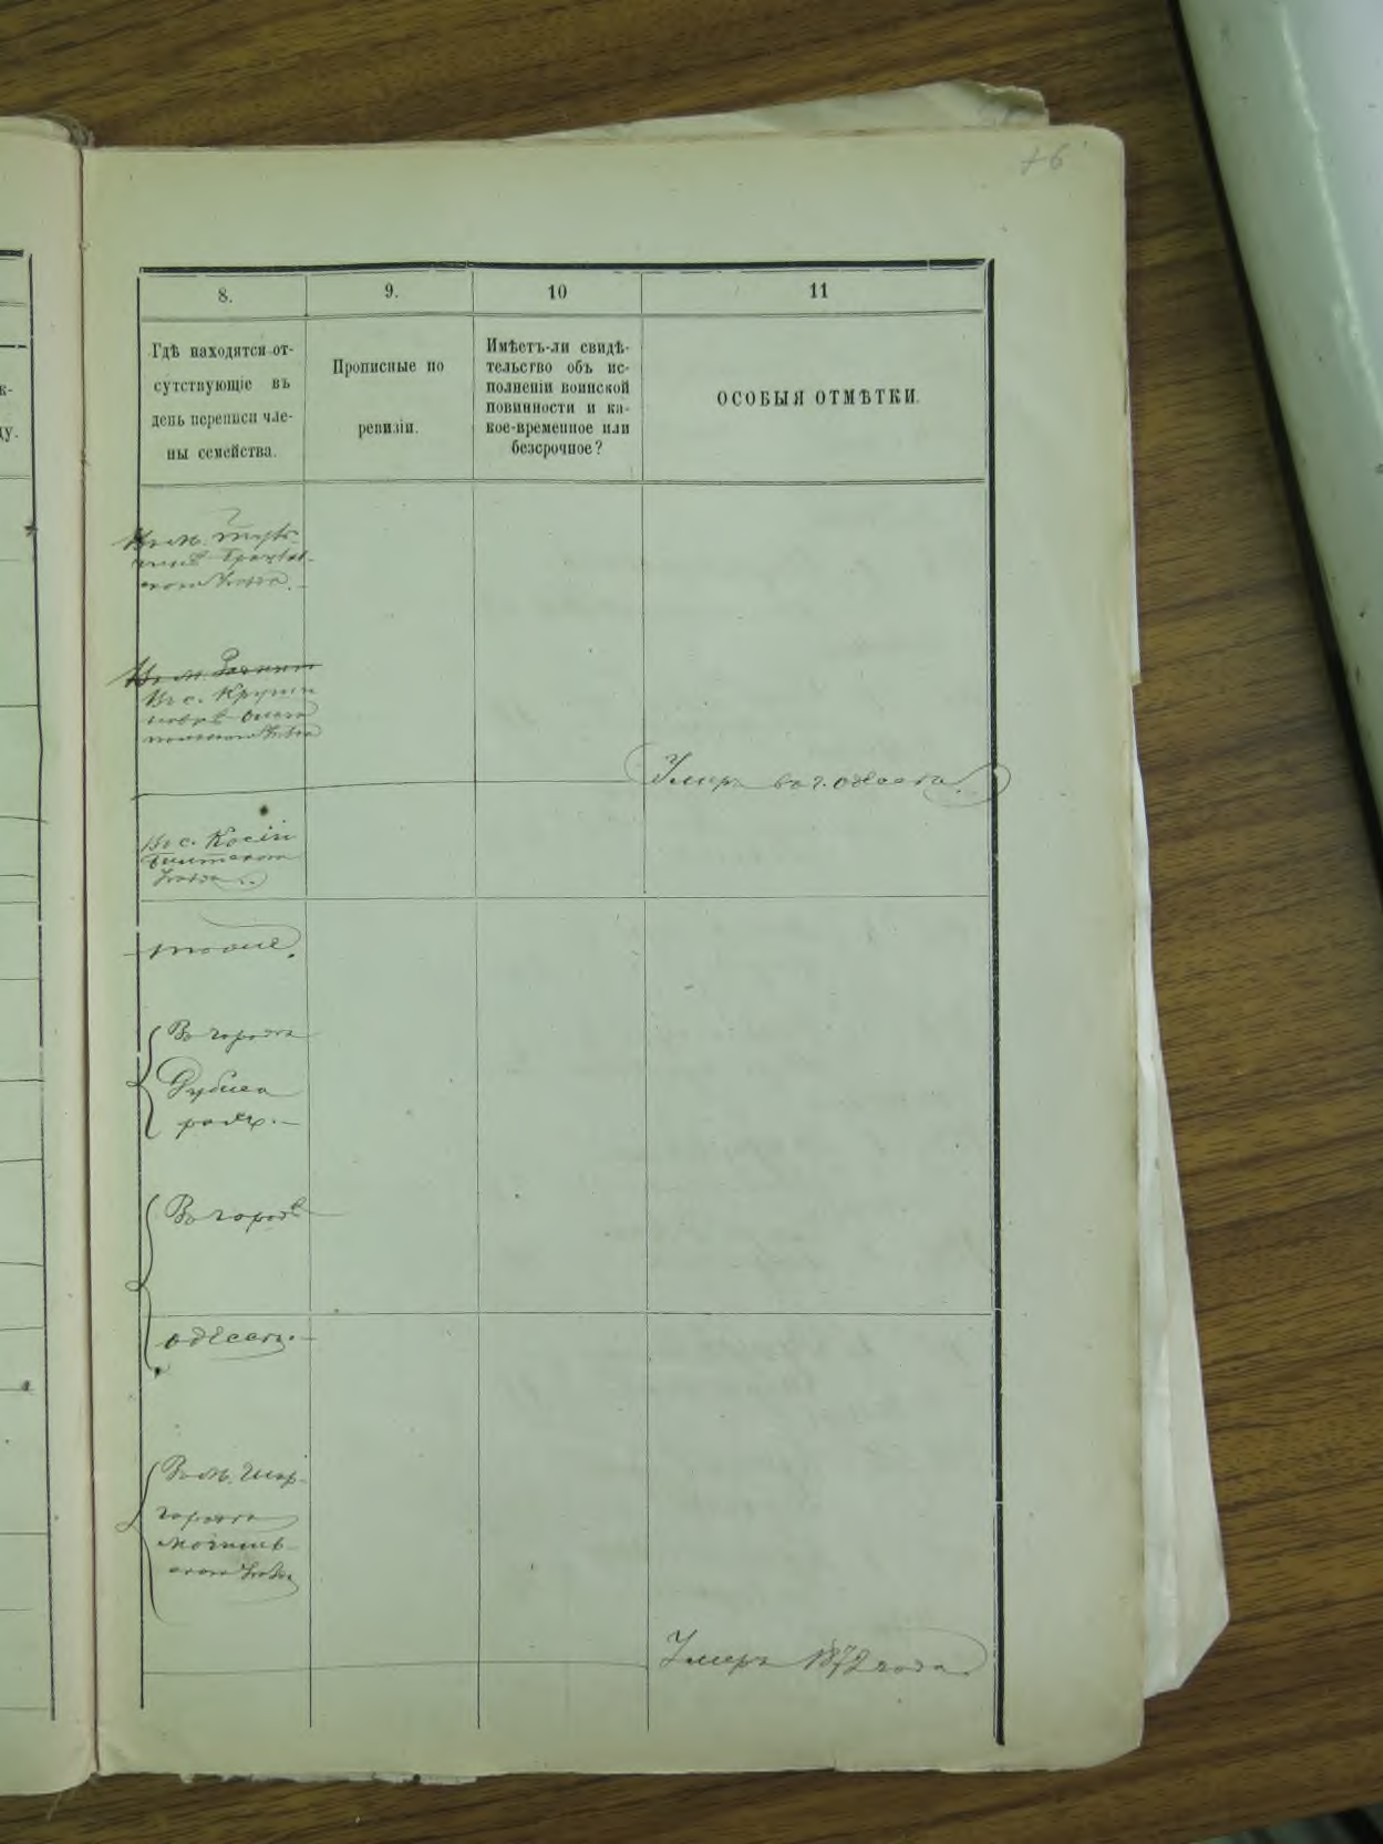 76
8.
9.
10
11
Гдѣ находятся от-
сутствующіе въ
день переписи чле-
ны семейства.
Прописные по
ревизіи.
Имѣетъ-ли свидѣ-
тельство объ ис-
полненіи воинской
повинности и ка-
кое-временное или
безсрочное?
ОСОБЫЯ ОТМѢТКИ.
к-
ду.
Въ м.
Брацлав-
скаго уѣзда.
Въ м.
Въ с.
уѣзда
Умеръ въ г. Одесса.
Въ с.
уѣзда.
тоже.
Въ городѣ
Дубоса
рахъ.
Въ городѣ
Одессѣ.
Въ м. Шар-
городѣ
Могилев-
скаго уѣзда
Умеръ 1872 года.